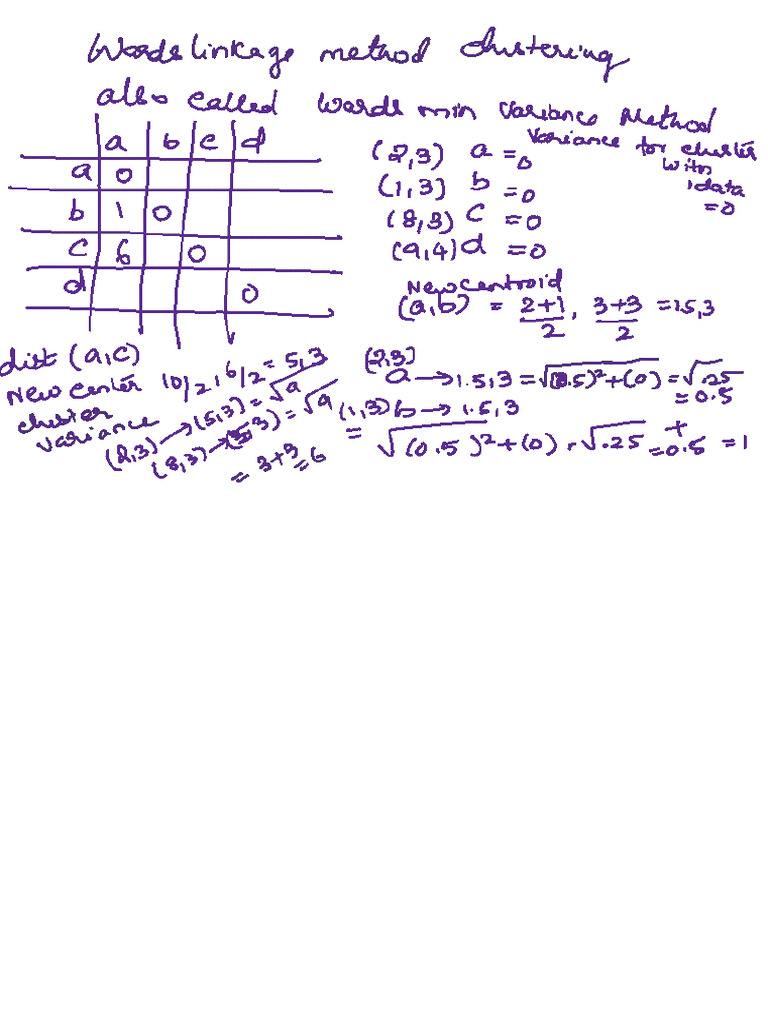 Wards linkage method clustering
also called Wards min Variance Method
a b c d
a 0
b 1 0
c 6 0
d 0
(2,3) a = 0
(1,3) b = 0
(8,3) c = 0
(9,4) d = 0
Variance for cluster
with
1 data
= 0
New Centroid
(a,b) = 2+1/2 , 3+3/2 = 1.5,3
dist (a,c)
New center 10/2 , 6/2 = 5,3
cluster
variance
(2,3) → (5,3) = √9
(8,3) → (5,3) = √9
= 3+3 = 6
(2,3)
a → 1.5,3 = √(0.5)²+(0) = √.25
= 0.5
(1,3) b → 1.5,3 +
= √(0.5)²+(0) = √.25 = 0.5 = 1